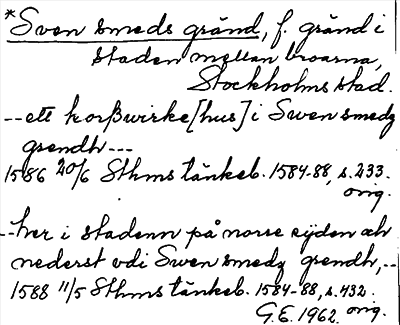 *Sven smeds gränd, f. gränd i
staden mellan broarna,
Stockholms stad.
-- ett korßwirke[hus] i Swen smedz
grendh ---
1586 20/6 Sthms tänkeb. 1584-88, s. 233.
orig.
-- her i stadenn på norre sijden ah
nederst vdi Swen smedz grendh, --
1588 11/5 Sthms tänkeb. 1584-88, s. 432.
G.E. 1962. orig.